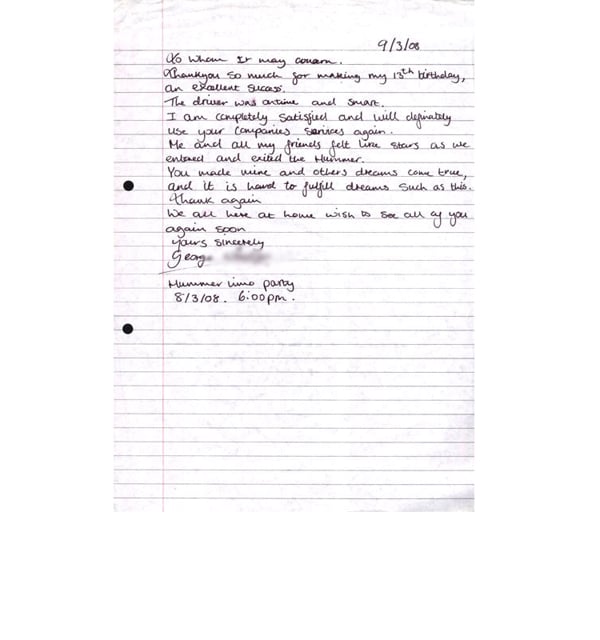 9/3/08
To whom It may concern.
Thankyou so much for making my 13th birthday,
an excellent success.
The driver was ontime and smart.
I am completely satisfied and will definately
use your companies services again.
Me and all my friends felt like stars as we
entered and exited the Hummer.
You made mine and others dreams come true,
and it is hard to fulfill dreams such as this.
Thank again
We all here at home wish to see all of you
again soon
Yours sincerely
Hummer limo party
8/3/08. 6:00pm.